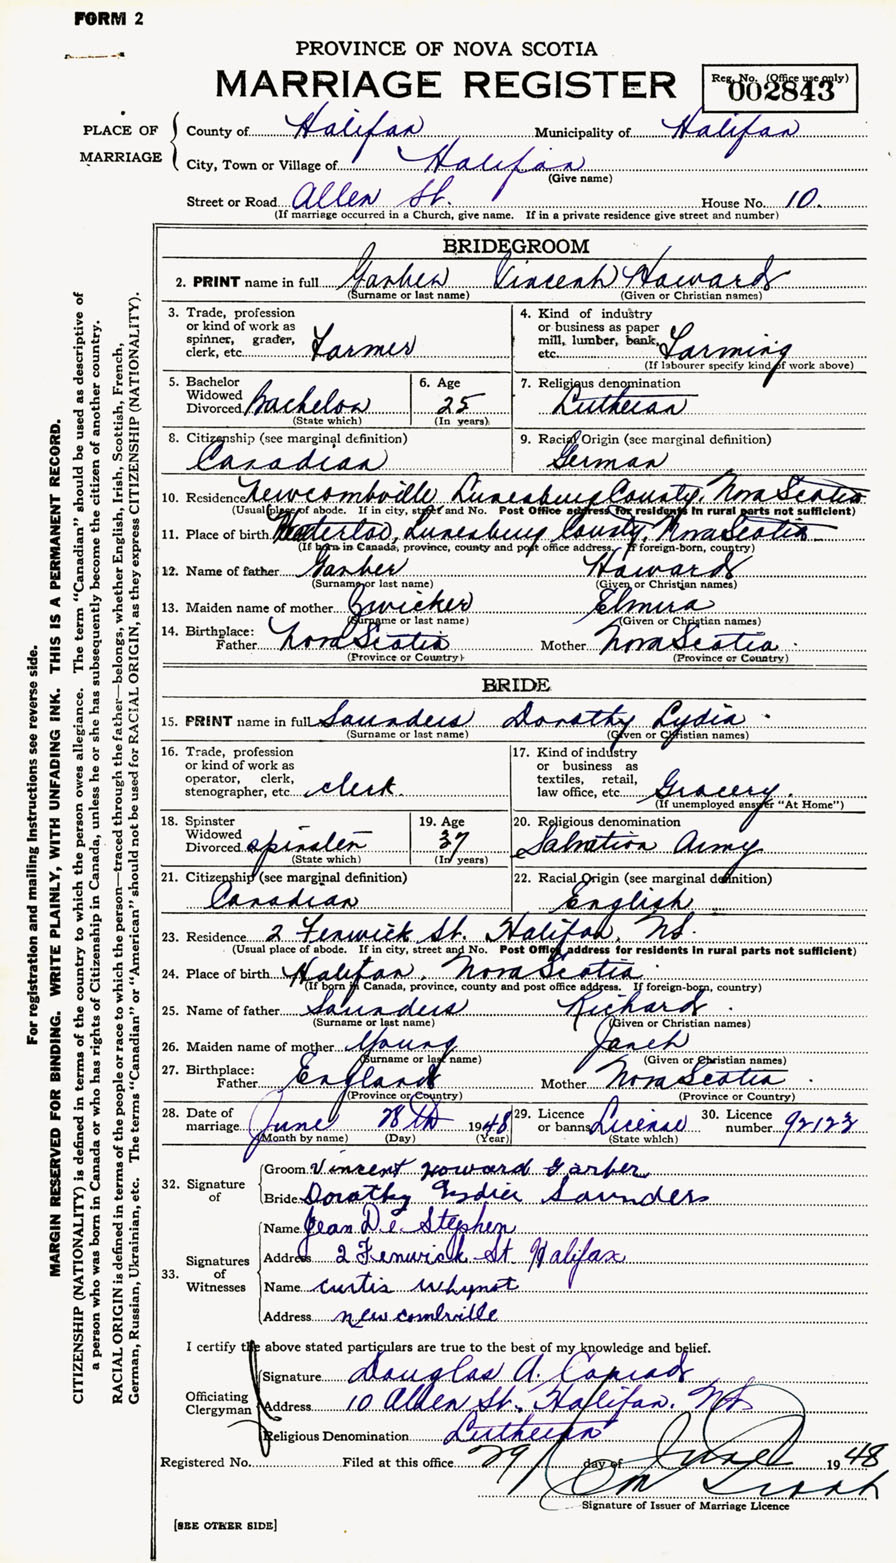 FORM 2
PROVINCE OF NOVA SCOTIA
MARRIAGE REGISTER
Reg. No. (Office use only)
002843
PLACE OF MARRIAGE
County of Halifax Municipality of Halifax
City, Town or Village of Halifax
(Give name)
Street or Road Allen St. House No. 10.
(If marriage occurred in a Church, give name. If in a private residence give street and number)
BRIDEGROOM
2. PRINT name in full Garber Vincent Howard
(Surname or last name) (Given or Christian names)
3. Trade, profession or kind of work as spinner, grader, clerk, etc. Farmer
4. Kind of industry or business as paper mill, lumber, bank, etc. Farming
(If labourer specify kind of work above)
5. Bachelor Widowed Divorced Bachelor
(State which)
6. Age 25
(In years)
7. Religious denomination Lutheran
8. Citizenship (see marginal definition)
Canadian
9. Racial Origin (see marginal definition)
German
10. Residence Newcombville Lunenburg County, Nova Scotia
(Usual place of abode. If in city, street and No. Post Office address for residents in rural parts not sufficient)
11. Place of birth Waterloo, Lunenburg County, Nova Scotia
(If born in Canada, province, county and post office address. If foreign-born, country)
12. Name of father Garber Howard
(Surname or last name) (Given or Christian names)
13. Maiden name of mother Zwicker Elmira
(Surname or last name) (Given or Christian names)
14. Birthplace:
Father Nova Scotia Mother Nova Scotia.
(Province or Country) (Province or Country)
BRIDE
15. PRINT name in full Saunders Dorothy Lydia.
(Surname or last name) (Given or Christian names)
16. Trade, profession or kind of work as operator, clerk, stenographer, etc. clerk.
17. Kind of industry or business as textiles, retail, law office, etc. Grocery.
(If unemployed answer "At Home")
18. Spinster Widowed Divorced spinster
(State which)
19. Age 37
(In years)
20. Religious denomination
Salvation Army
21. Citizenship (see marginal definition)
Canadian
22. Racial Origin (see marginal definition)
English
23. Residence 2 Fenwick St. Halifax, N.S.
(Usual place of abode. If in city, street and No. Post Office address for residents in rural parts not sufficient)
24. Place of birth Halifax, Nova Scotia.
(If born in Canada, province, county and post office address. If foreign-born, country)
25. Name of father Saunders Richard.
(Surname or last name) (Given or Christian names)
26. Maiden name of mother Young Janet
(Surname or last name) (Given or Christian names)
27. Birthplace:
Father England Mother Nova Scotia.
(Province or Country) (Province or Country)
28. Date of marriage June 28th 1948
(Month by name) (Day) (Year)
29. Licence or banns License
(State which)
30. Licence number 92122
32. Signature of
Groom Vincent Howard Garber
Bride Dorothy Lydia Saunders
33. Signatures of Witnesses
Name Jean De Stephen
Address 2 Fenwick St Halifax
Name Curtis Whynot
Address Newcombville
I certify the above stated particulars are true to the best of my knowledge and belief.
Officiating Clergyman
Signature Douglas A. Conrad
Address 10 Allen St. Halifax, N.S.
Religious Denomination Lutheran
Registered No. Filed at this office 29 day of June 1948
Signature of Issuer of Marriage Licence
[SEE OTHER SIDE]
For registration and mailing instructions see reverse side.
MARGIN RESERVED FOR BINDING. WRITE PLAINLY, WITH UNFADING INK. THIS IS A PERMANENT RECORD.
CITIZENSHIP (NATIONALITY) is defined in terms of the country to which the person owes allegiance. The term "Canadian" should be used as descriptive of
a person who was born in Canada or who has rights of Citizenship in Canada, unless he or she has subsequently become the citizen of another country.
RACIAL ORIGIN is defined in terms of the people or race to which the person—traced through the father—belongs, whether English, Irish, Scottish, French,
German, Russian, Ukrainian, etc. The terms "Canadian" or "American" should not be used for RACIAL ORIGIN, as they express CITIZENSHIP (NATIONALITY).